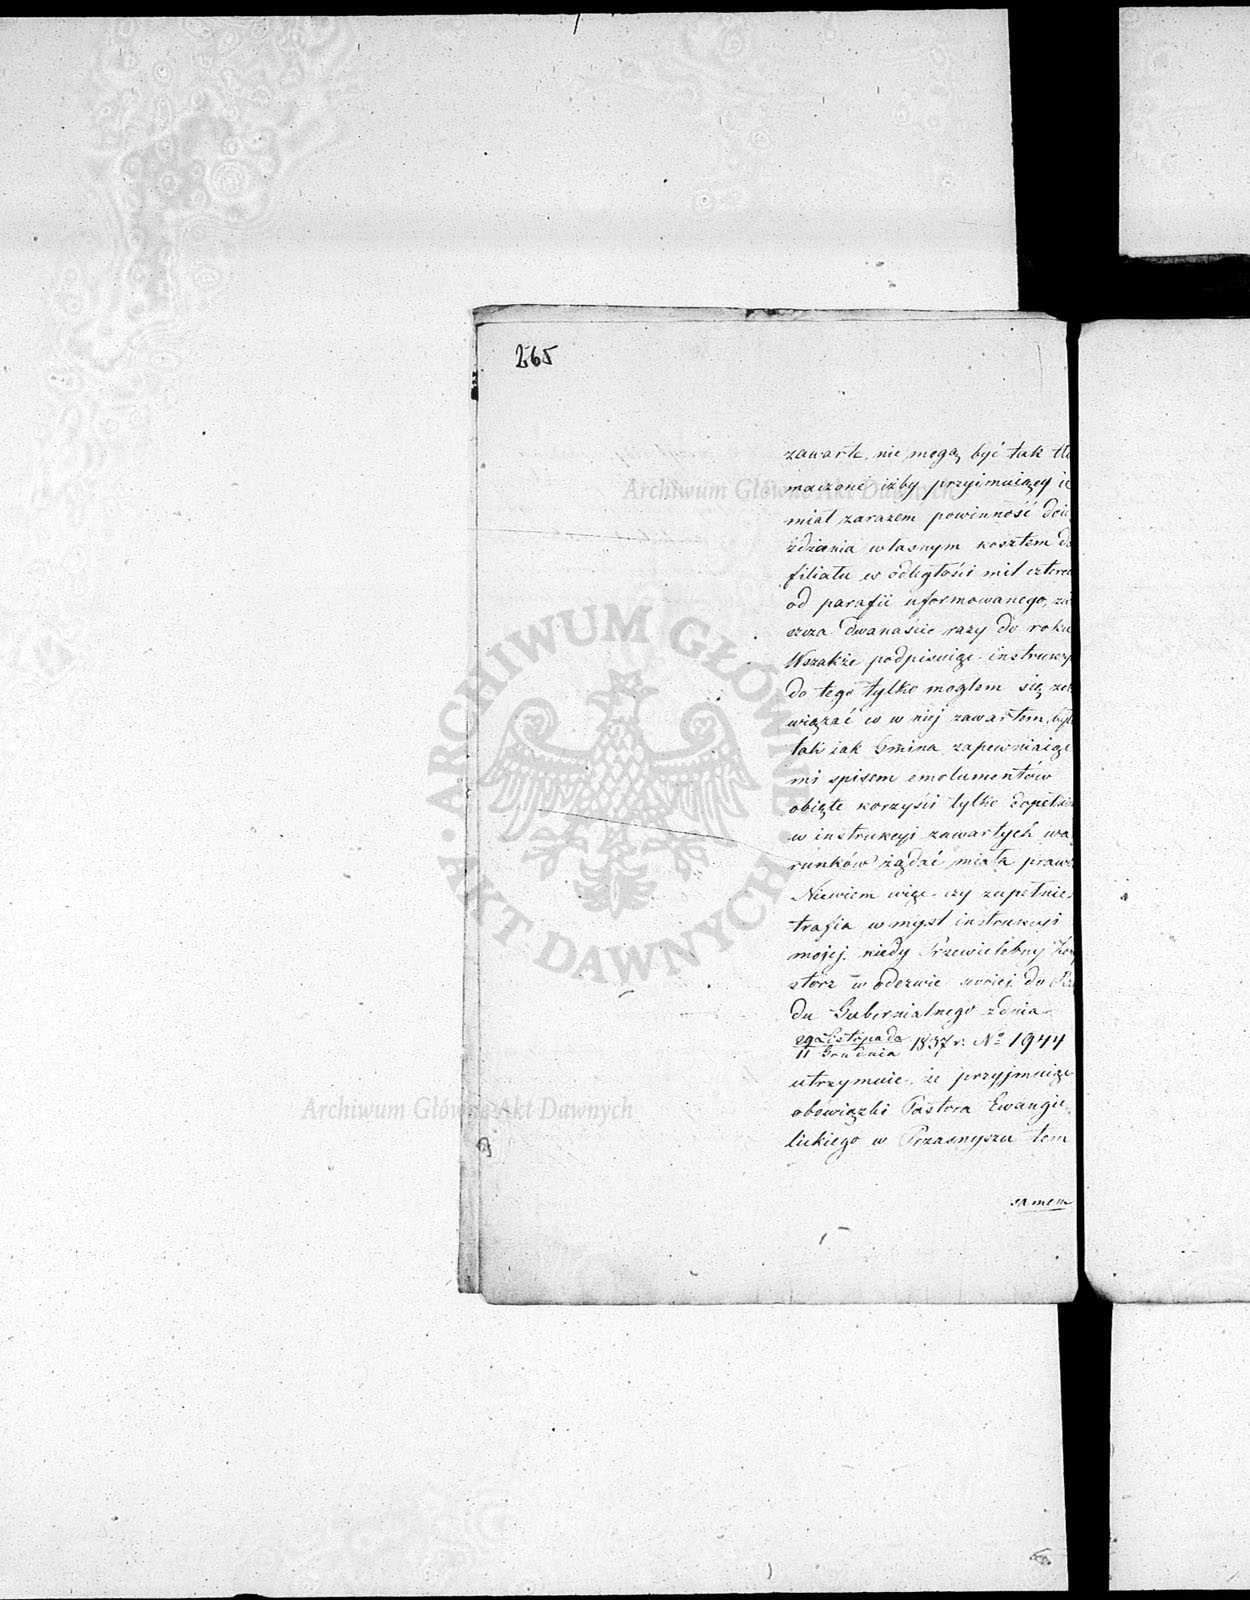 265
zawarte, nie mogą być tak tło
maczone iżby przyimuiący ie
miał zarazem powinność doie
żdżania własnym kosztem do
filiału w odległości mil czterech
od parafii uformowanego, zw
szcza dwanaście razy do roku
Wszakże podpisuiąc instrukcy
do tego tylko mogłem się zob
wiązać co w niej zawartem było
tak iak Gmina zapewniaiąc
mi spisem emolumentów
obięte korzyści tylko dopełnie
w instrukcyi zawartych wa
runków żądać miała prawo
Niewiem więc czy zupełnie
trafia w myśl instrukcyi
mojej, kiedy Przewielebny Kon
storz w odezwie swoiej do Rzą
du Gubernialnego z dnia
29 Listopada
11 Grudnia 1837 r. No 1944
utrzymuie, że przyjmuiąc
obowiązki Pastora Ewangie
lickiego w Przasnyszu tem
samem
Archiwum Główne Akt Dawnych
ARCHIWUM GŁÓWNE AKT DAWNYCH
Archiwum Główne Akt Dawnych